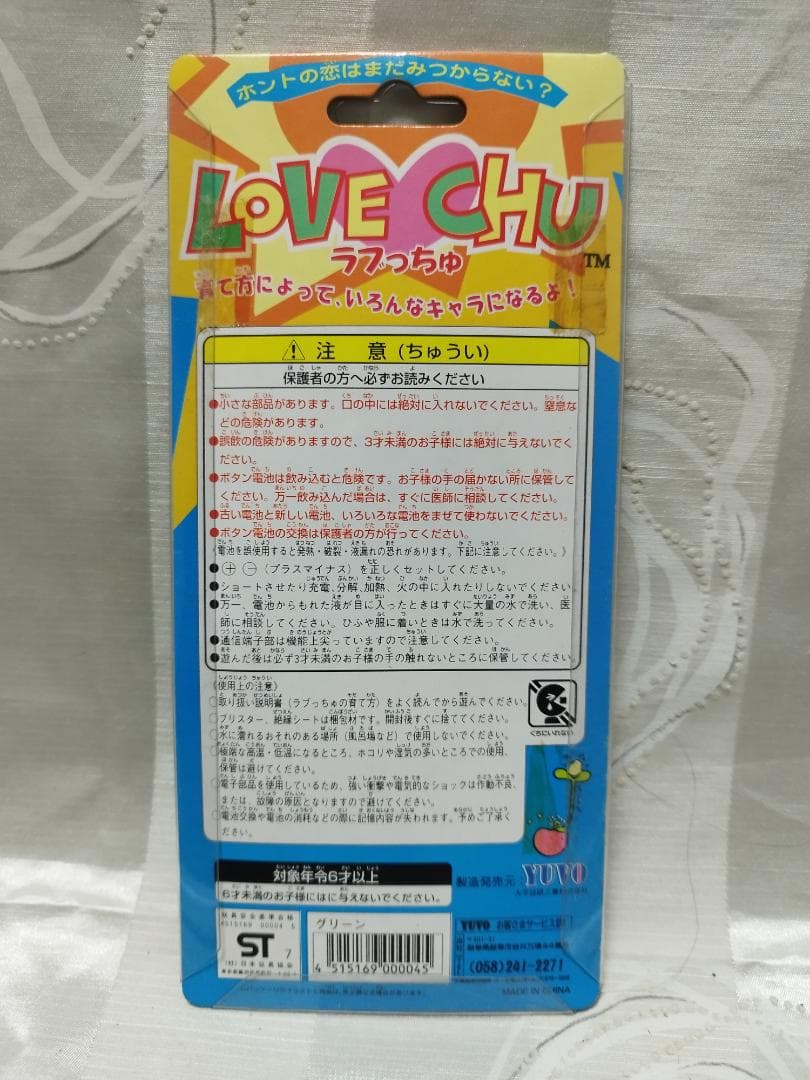 ホントの恋はまだみつからない？
LOVE CHU
ラブっちゅ
TM
育て方によって、いろんなキャラになるよ！
⚠ 注 意（ちゅうい）
保護者の方へ必ずお読みください
●小さな部品があります。口の中には絶対に入れないでください。窒息な
どの危険があります。
●誤飲の危険がありますので、3才未満のお子様には絶対に与えないでく
ださい。
●ボタン電池は飲み込むと危険です。お子様の手の届かない所に保管して
ください。万一飲み込んだ場合は、すぐに医師に相談してください。
●古い電池と新しい電池、いろいろな電池をまぜて使わないでください。
●ボタン電池の交換は保護者の方が行ってください。
《電池を誤使用すると発熱・破裂・液漏れの恐れがあります。下記に注意してください。》
●⊕ ⊖（プラスマイナス）を正しくセットしてください。
●ショートさせたり充電、分解、加熱、火の中に入れたりしないでください。
●万一、電池からもれた液が目に入ったときはすぐに大量の水で洗い、医
師に相談してください。ひふや服に着いたときは水で洗ってください。
●通信端子部は機能上尖っていますので注意してください。
●遊んだ後は必ず3才未満のお子様の手の触れないところに保管してください。
《使用上の注意》
○取り扱い説明書（ラブっちゅの育て方）をよく読んでから遊んでください。
○ブリスター、絶縁シートは梱包材です。開封後すぐに捨ててください。
○水に濡れるおそれのある場所（風呂場など）で使用しないでください。
○極端な高温・低温になるところ、ホコリや湿気の多いところでの使用、
保管は避けてください。
○電子部品を使用しているため、強い衝撃や電気的なショックは作動不良、
または、故障の原因となりますので避けてください。
○電池交換や電池の消耗などの際に記憶内容が失われます。予めご了承く
ださい。
くちにいれない
対象年令6才以上
6才未満のお子様にはに与えないでください。
製造発売元 YUVO
玩具安全基準合格
AS15169 00004 5
ST 7
(社)日本玩具協会
グリーン
4 515169 000045
YUVO お客さまサービス部
(058)241-2271
MADE IN CHINA